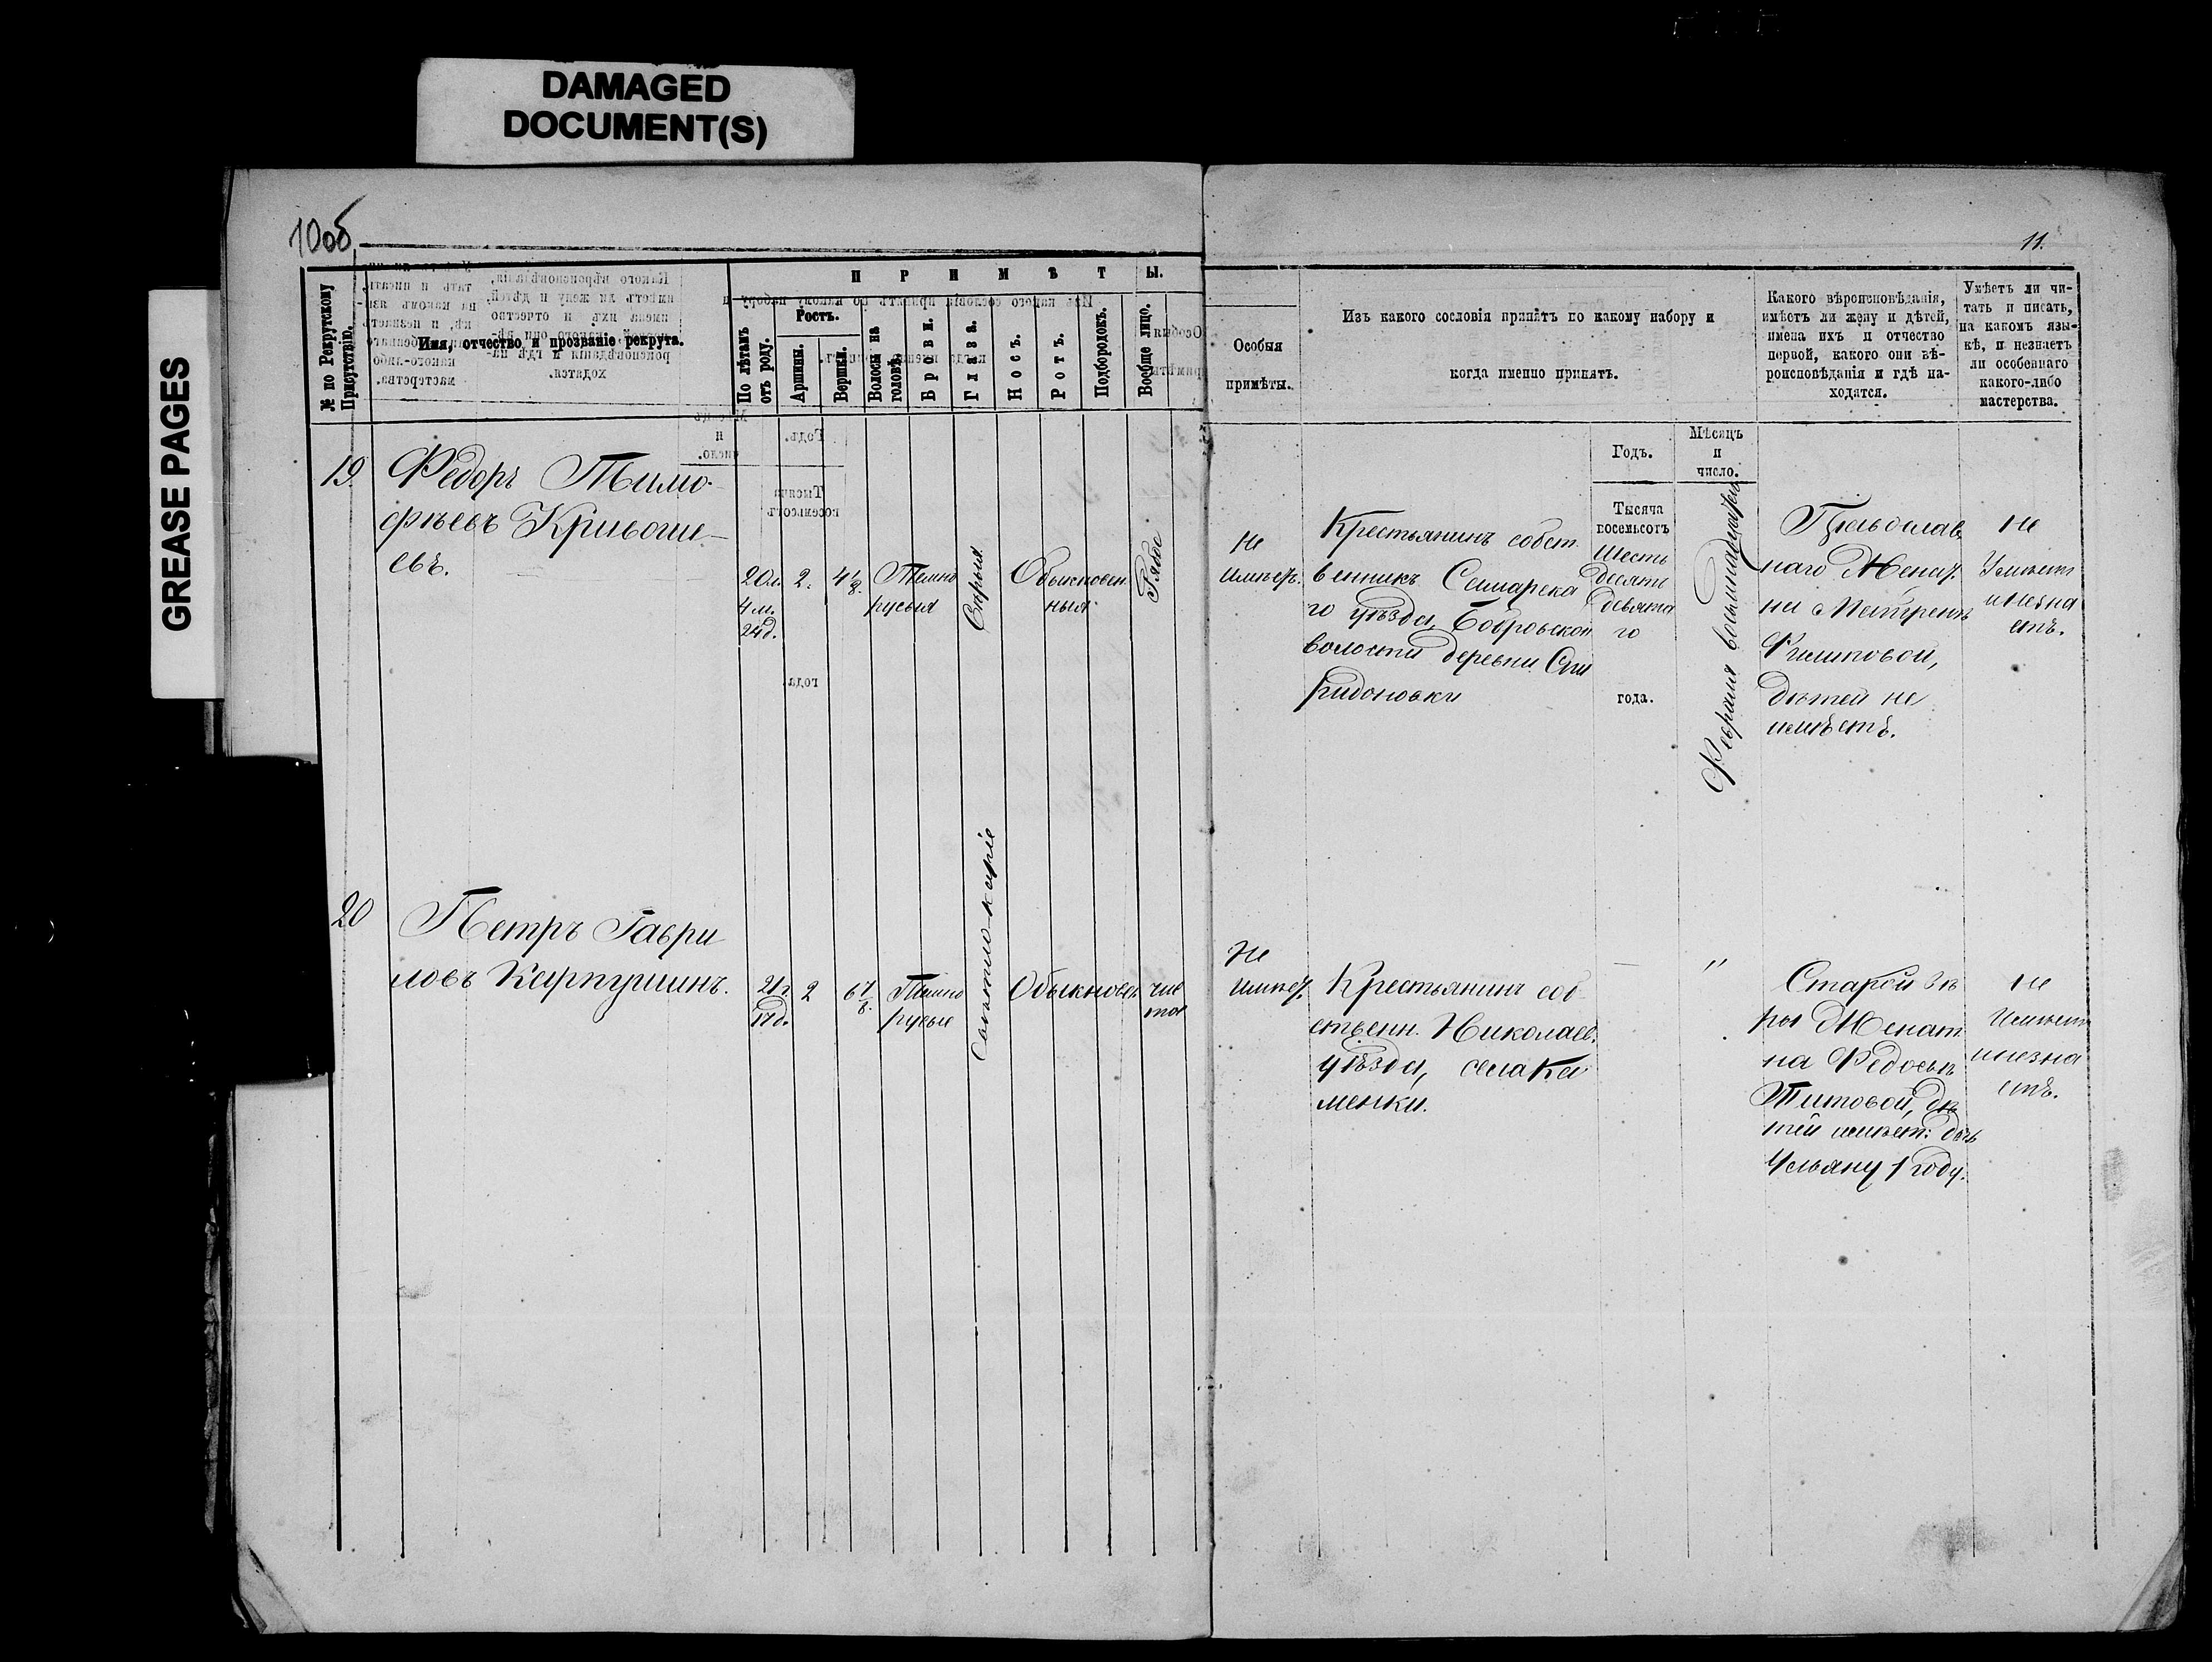 DAMAGED
DOCUMENT(S)
GREASE PAGES
10об
11.
П Р И М Ѣ Т Ы.
№ по Рекрутскому
Присутствію.
Имя, отчество и прозваніе рекрута.
По лѣтамъ
отъ роду.
Ростъ.
Аршины.
Вершки.
Волосы на
головѣ.
Брови.
Глаза.
Носъ.
Ротъ.
Подбородокъ.
Вообще лицо.
Особыя
примѣты.
Изъ какого сословія принятъ по какому набору и
когда именно принятъ.
Годъ.
Мѣсяцъ
и
число.
Какого вѣроисповѣданія,
имѣетъ ли жену и дѣтей,
имена ихъ и отчество
первой, какого они вѣ-
роисповѣданія и гдѣ на-
ходятся.
Умѣетъ ли чи-
тать и писать,
на какомъ язы-
кѣ, и незнаетъ
ли особеннаго
какого-либо
мастерства.
19
Федоръ Тимо-
фѣевъ Кривоше-
евъ.
20л.
4 м.
24д.
2.
4 1/8.
Темно
русыя
Сѣрыя
Обыкновен
ныя
Рябое
Не
имѣет.
Крестьянинъ собст
венникъ Самарска
го уѣзда, Бобровской
волости деревни Спи
ридоновки
Тысяча
восемьсотъ
Шесть
десятъ
девята
го
года.
Февраля восьмнадцатаго
Православ
наго Женат.
на Матренѣ
Филиповой,
дѣтей не
имѣетъ.
не
Умѣетъ
и незна
етъ.
20
Петръ Гаври
ловъ Карпушинъ.
21 г.
17 д.
2
6 1/8.
Темно
русые
Свѣтло-каріе
Обыкновен
чис
тое
Не
имѣет.
Крестьянинъ соб-
ственн. Николаев.
уѣзда, села Ка
менки.
—
"
Старой вѣ
ры Женат
на Федосьѣ
Титовой, дѣ
тей имѣет: дочь
Ульяну 1 году.
не
Умѣетъ
и незна
етъ.